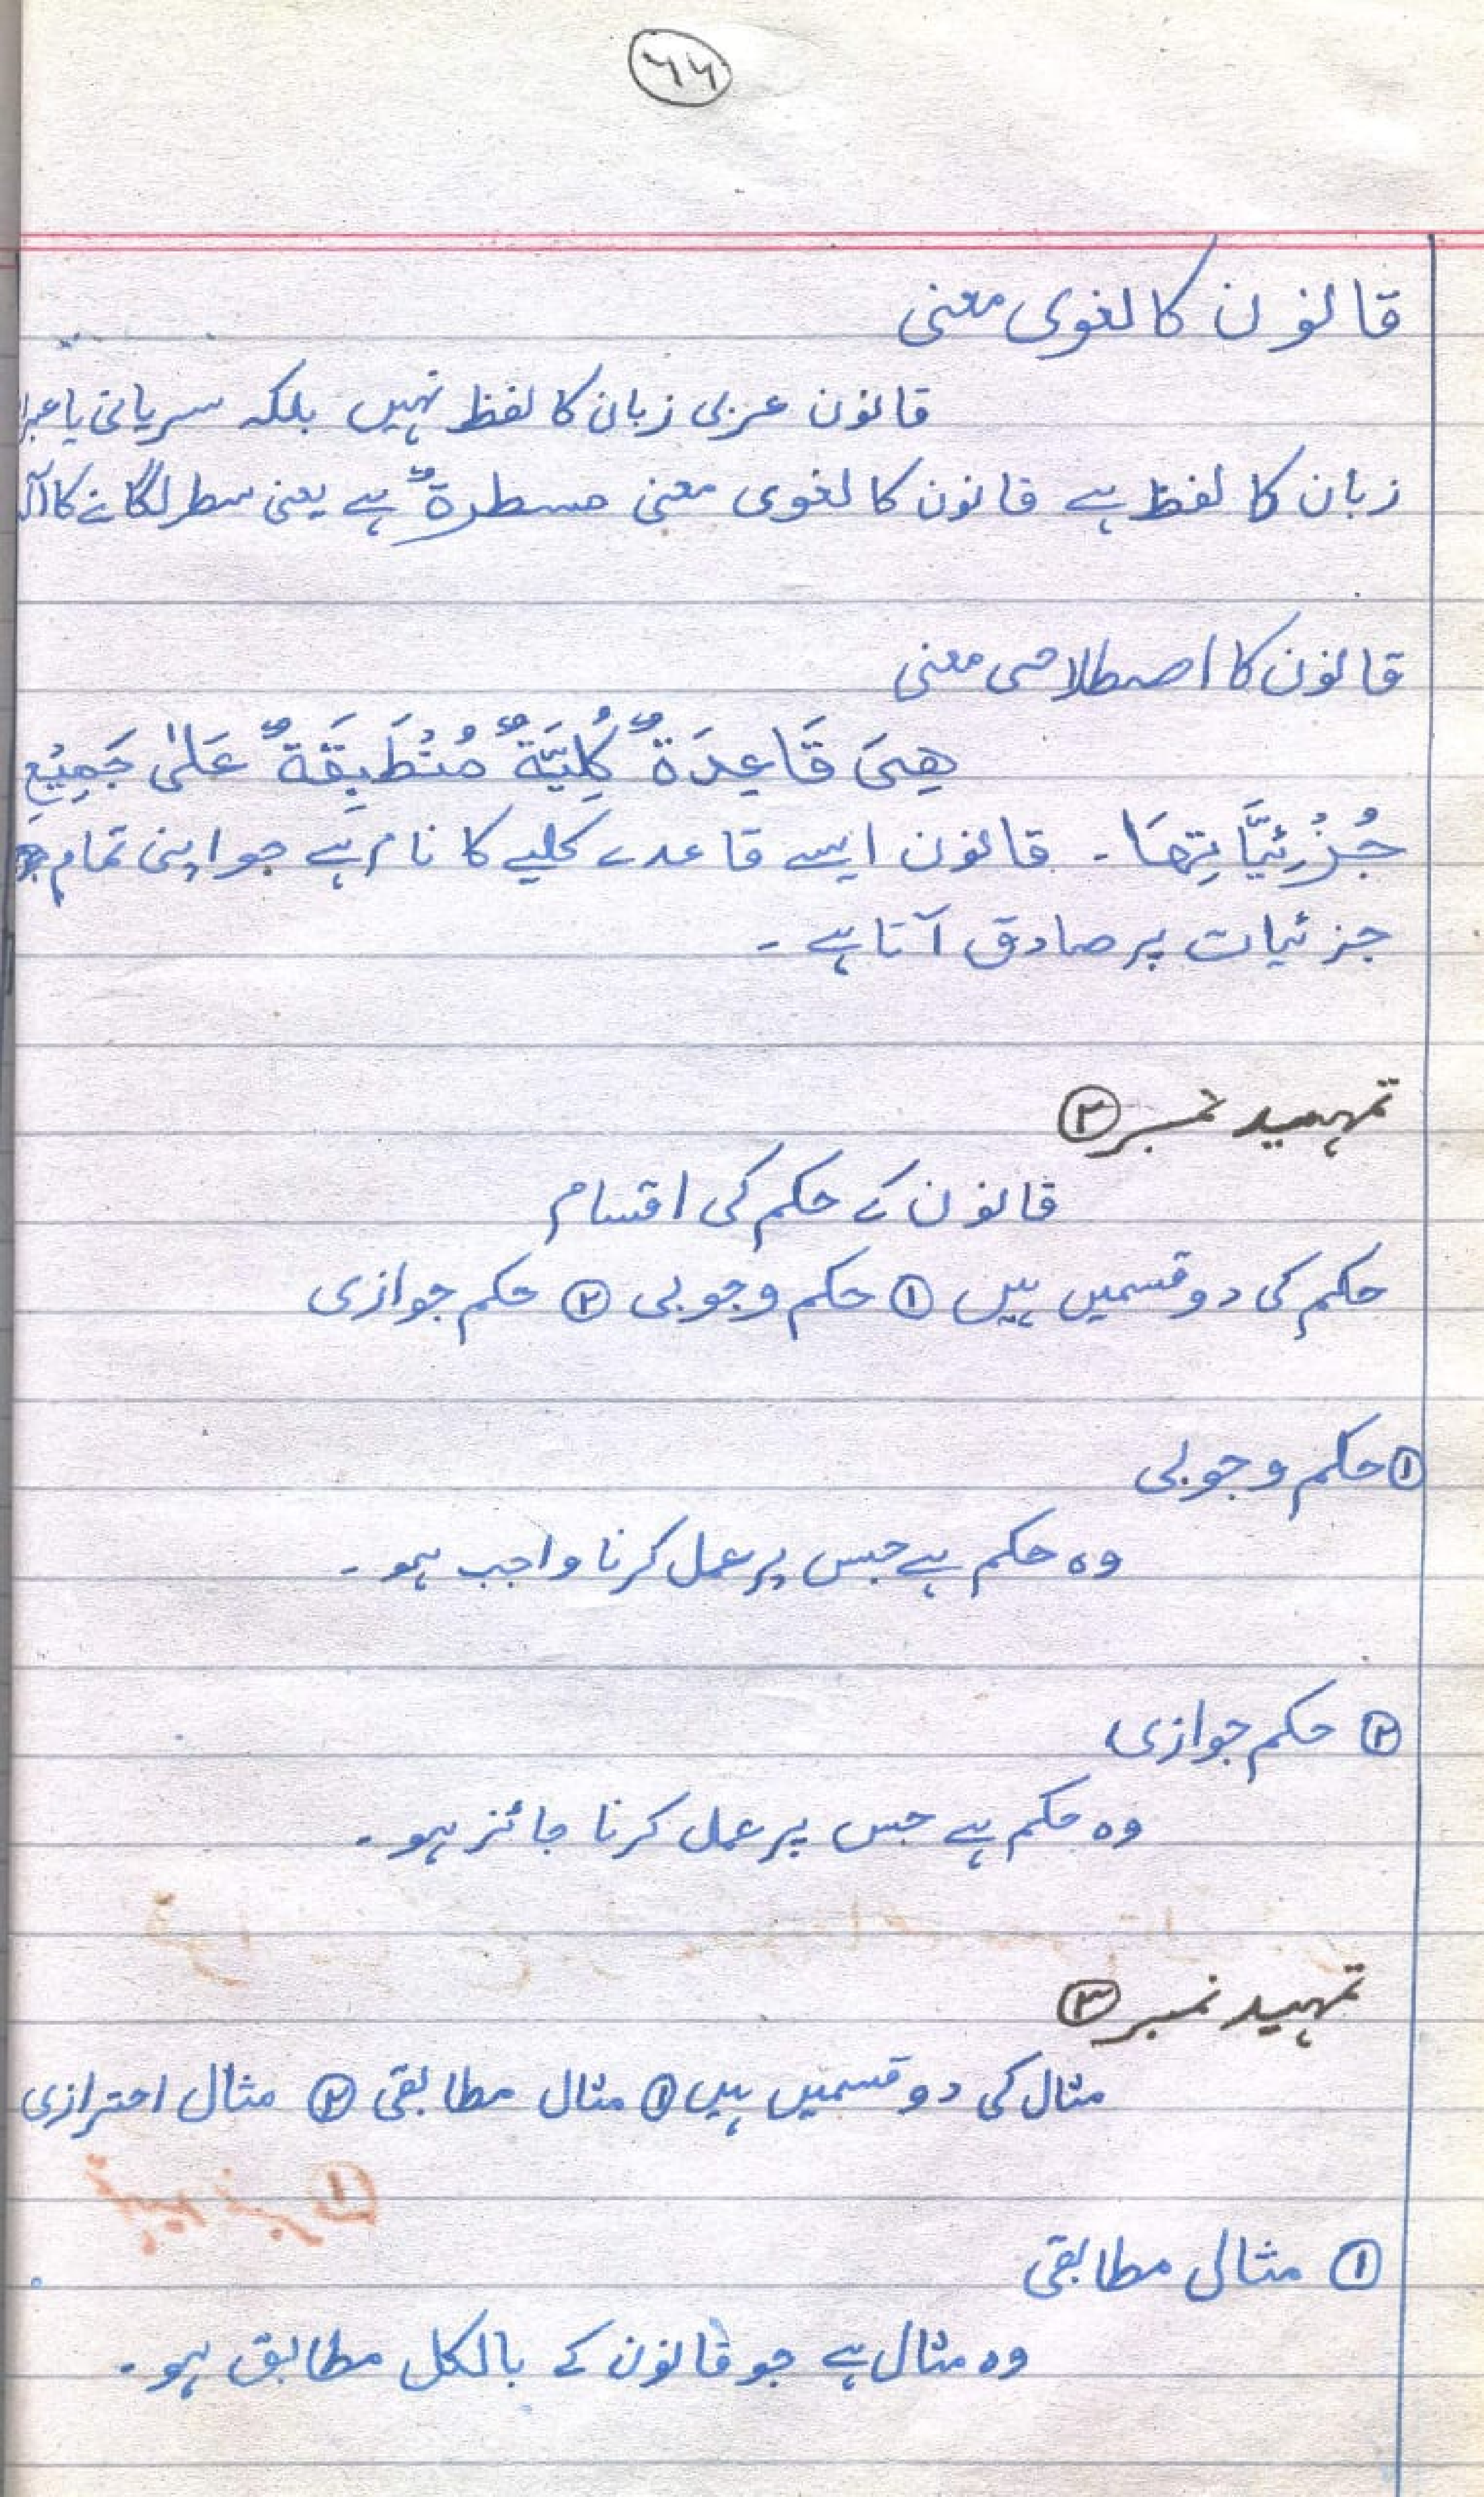 ۶۶
قانون کا لغوی معنی
قانون عربی زبان کا لفظ نہیں بلکہ سریانی یا
زبان کا لفظ ہے قانون کا لغوی معنی مسطرۃٌ ہے یعنی سطر لگانے کا آلہ
قانون کا اصطلاحی معنی
ھِیَ قَاعِدَۃٌ کُلِیَّۃٌ مُنْطَبِقَۃٌ عَلٰی جَمِیْعِ
جُزْئِیَّاتِھَا۔ قانون ایسے قاعدے کلیے کا نام ہے جو اپنی تمام
جزئیات پر صادق آتا ہے۔
تمہید نمبر ②
قانون کے حکم کی اقسام
حکم کی دو قسمیں ہیں ① حکم وجوبی ② حکم جوازی
① حکم وجوبی
وہ حکم ہے جس پر عمل کرنا واجب ہو۔
② حکم جوازی
وہ حکم ہے جس پر عمل کرنا جائز ہو۔
تمہید نمبر ③
مثال کی دو قسمیں ہیں ① مثال مطابقی ② مثال احترازی
① مثال مطابقی
وہ مثال ہے جو قانون کے بالکل مطابق ہو۔